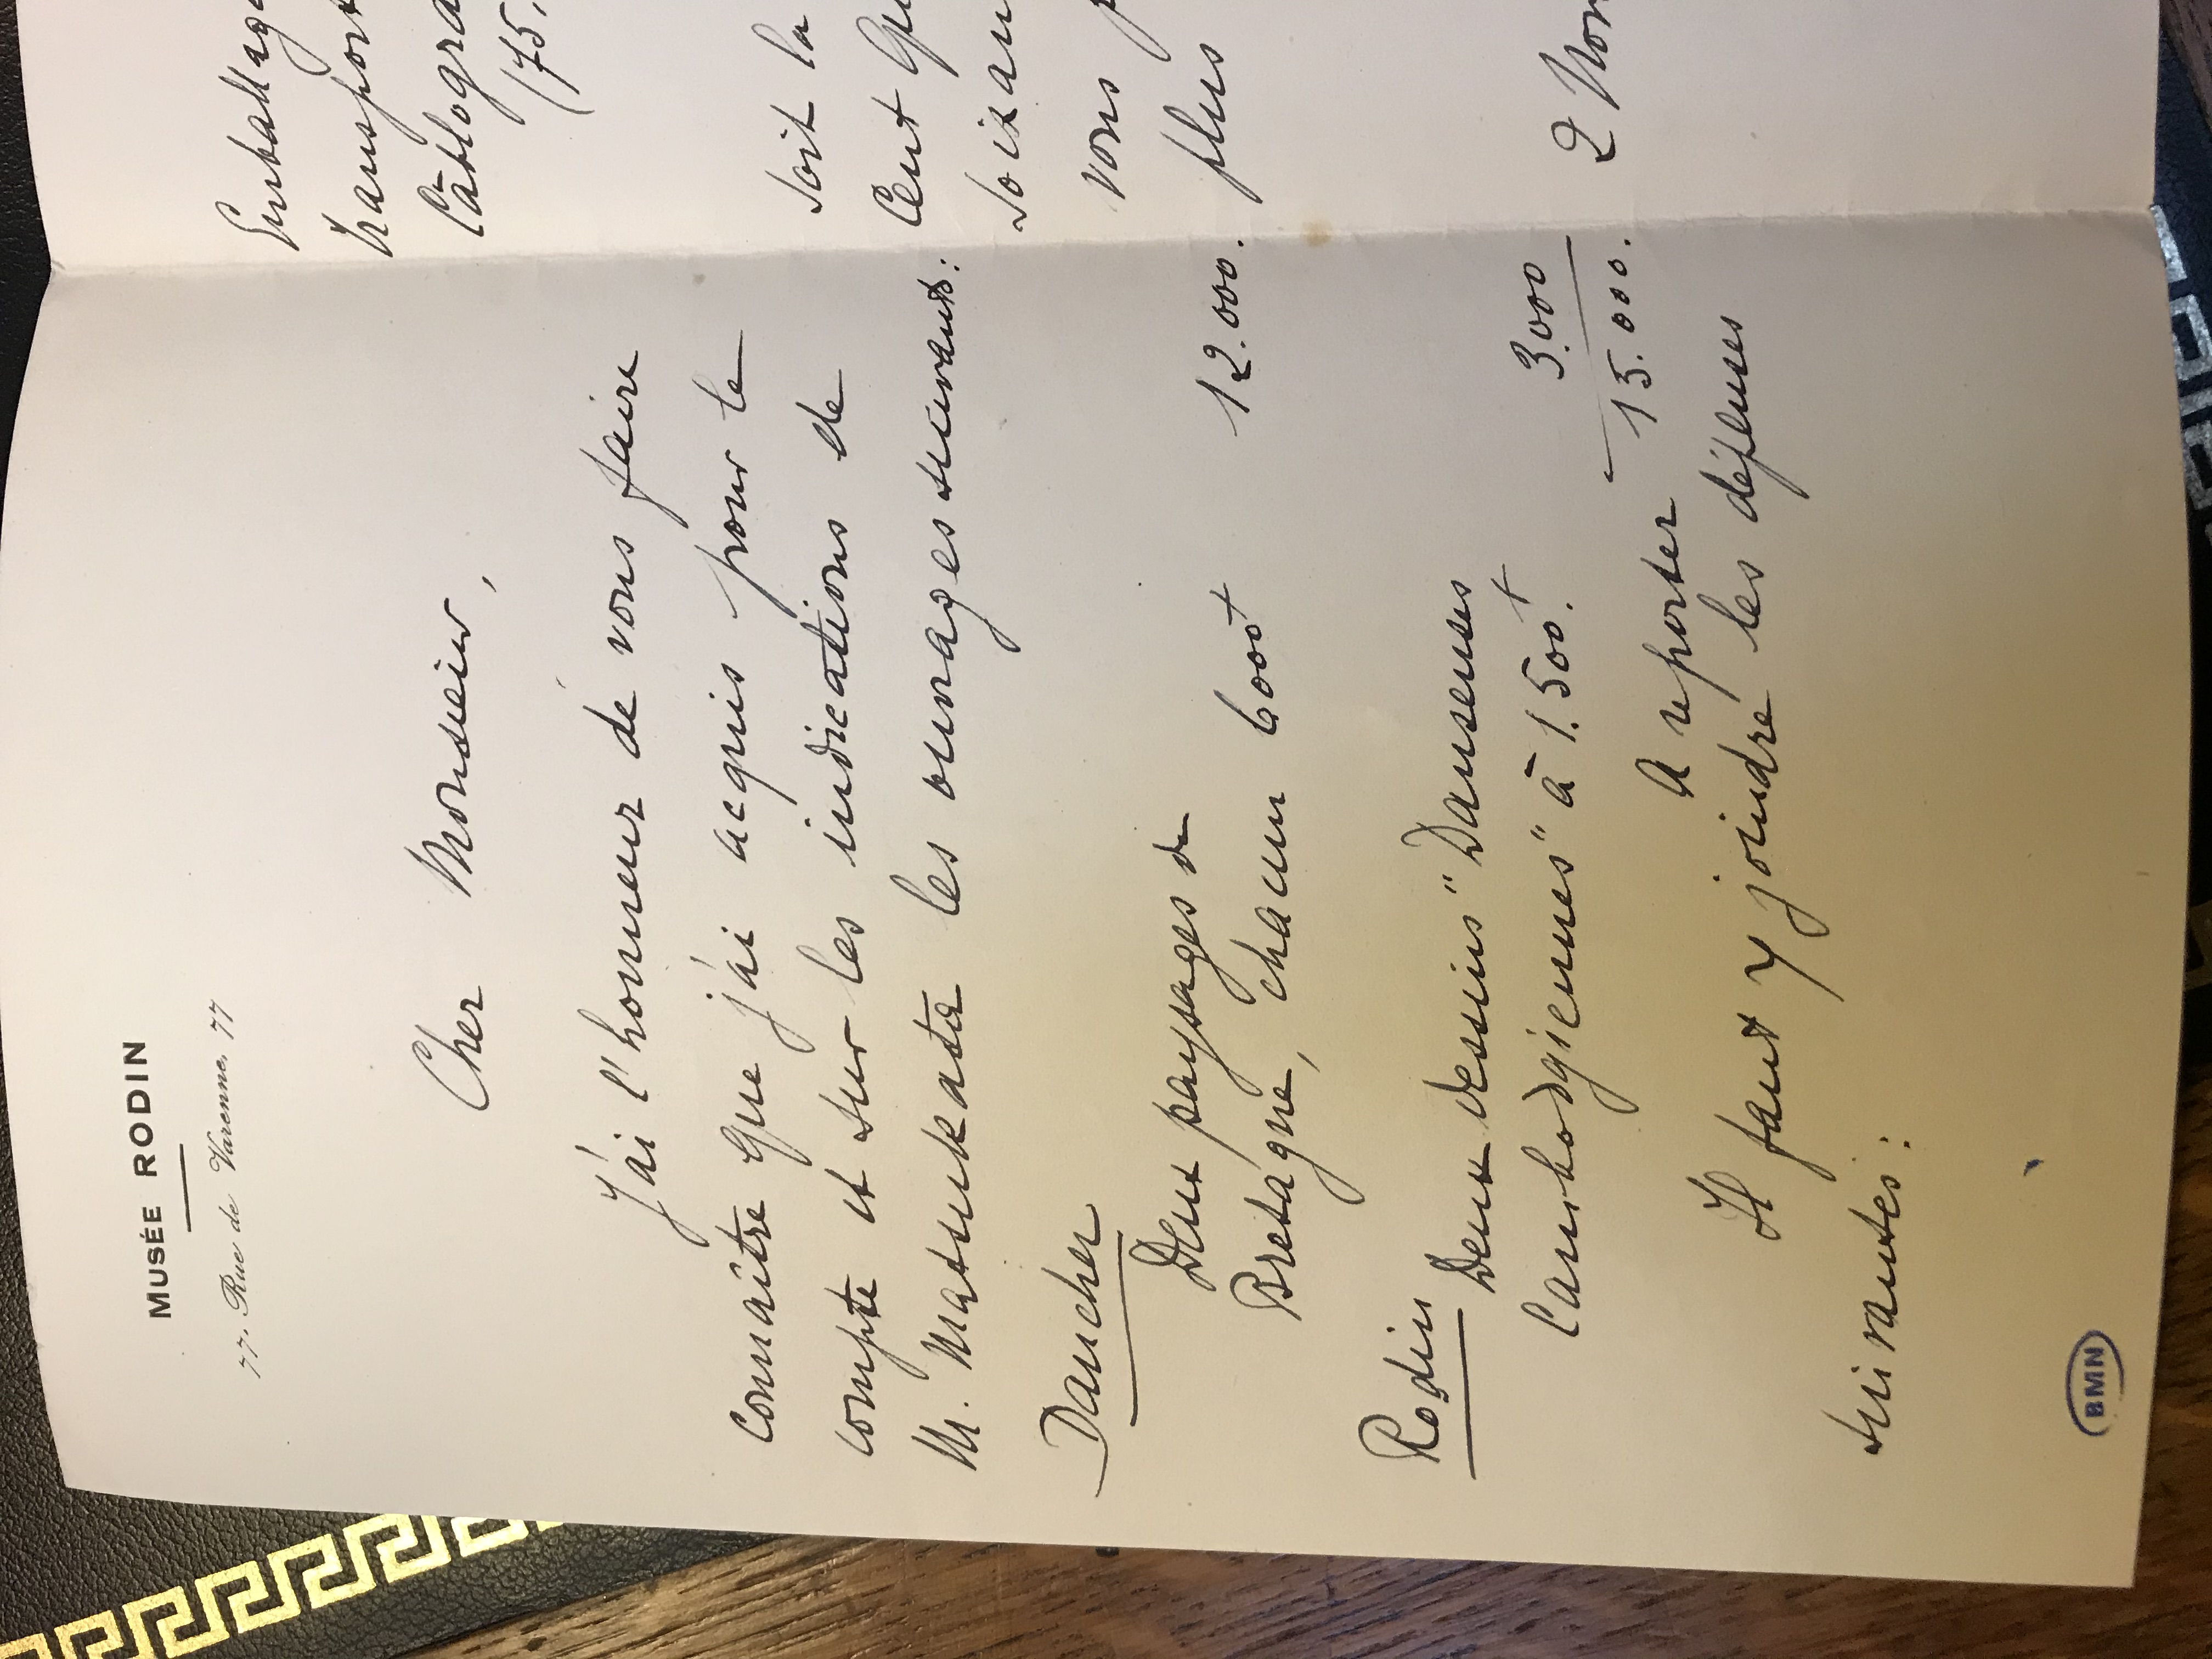 MUSÉE RODIN
77, Rue de Varenne, 77
Cher Monsieur,
J'ai l'honneur de vous faire
connaître que j'ai acquis pour le
compte et sur les indications de
M. Matsukata les ouvrages suivants:
Dauchez
Deux paysages de
Bretagne, chacun 6000f 12.000.
Rodin Deux dessins "Danseuses
Cambodgiennes" à 1.500f. 3.000
A reporter 15.000.
Il faut y joindre les dépenses
suivantes:
BMN
Emballage
transport
Cablogra
(75.
Soit la
Cent Qu
soixan
vous p
plus
2 Nov